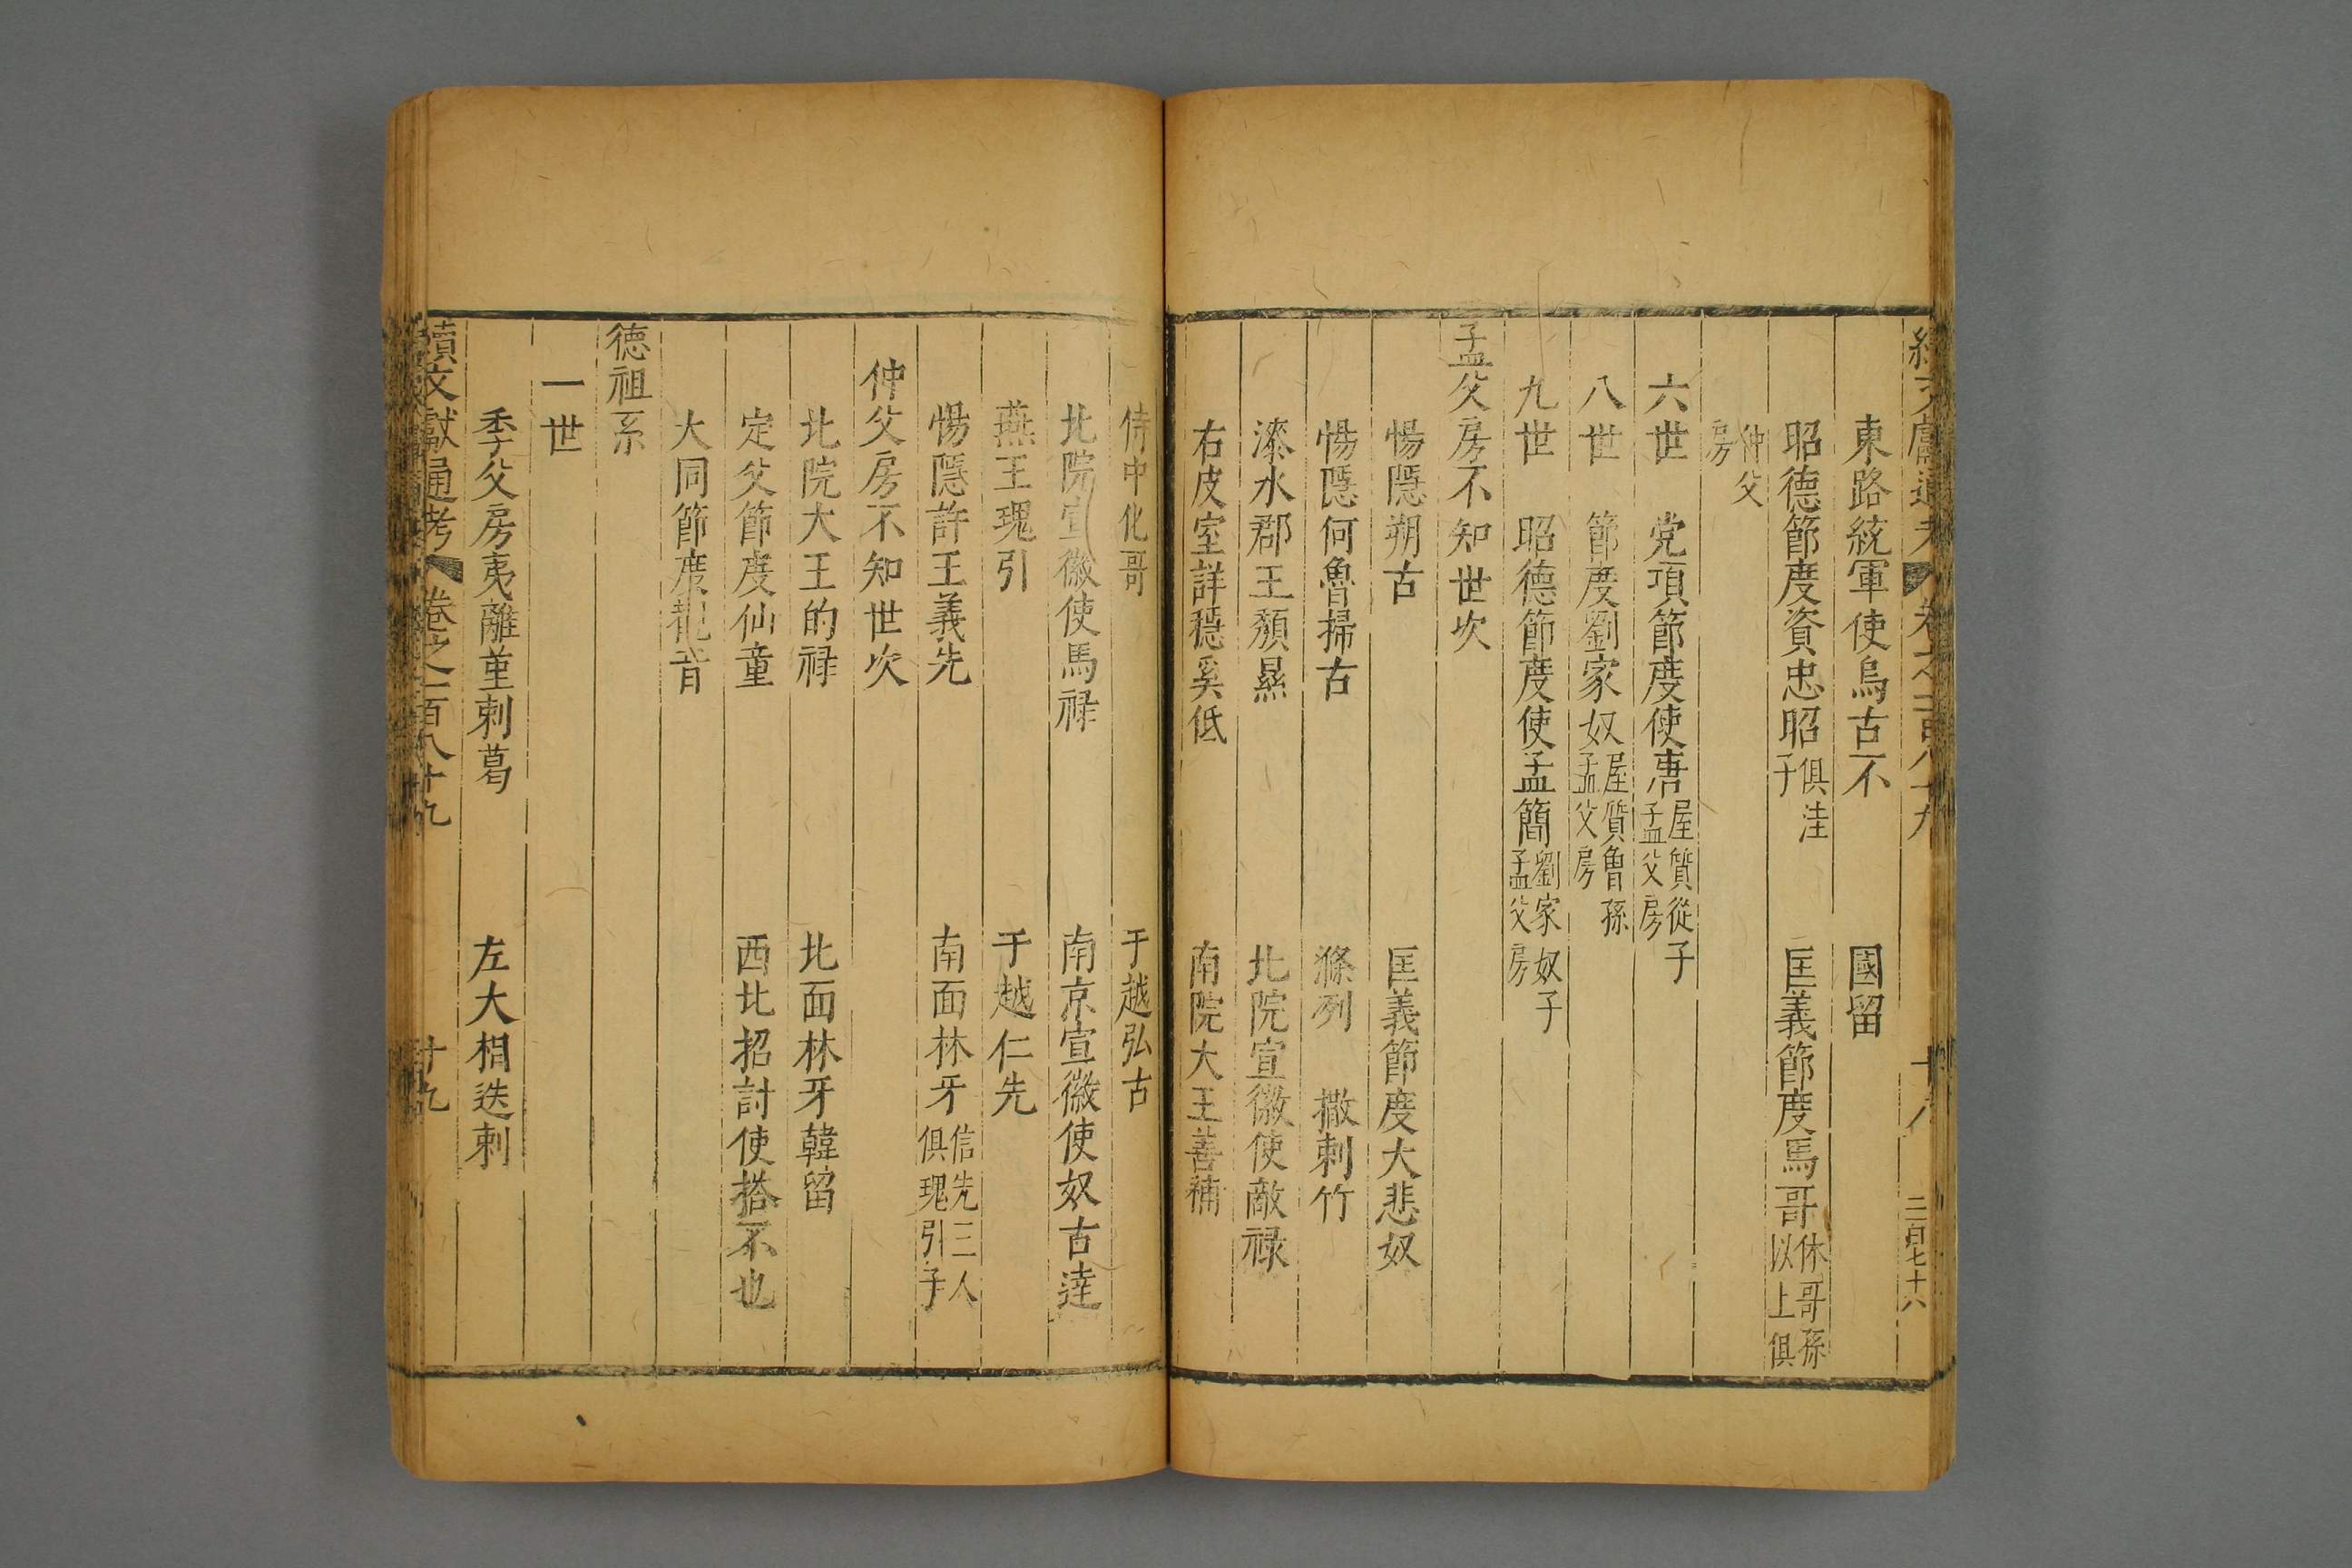 續文獻通考 卷之一百八十九 十八 三百七十六
東路統軍使烏古不 國留
昭德節度資忠昭俱洼子 匡義節度馬哥休哥孫以上俱
仲父房
六世 党項節度使唐屋質從子孟父房
八世 節度劉家奴屋質魯孫孟父房
九世 昭德節度使孟簡劉家奴子孟父房
孟父房不知世次
惕隱朔古 匡義節度大悲奴
惕隱何魯掃古 滌冽 撒剌竹
漆水郡王頽昷 北院宣徽使敵禄
右皮室詳穩奚低 南院大王善補
侍中化哥 于越弘古
北院宣徽使馬禄 南京宣徽使奴古達
燕王瑰引 于越仁先
惕隱許王義先 南面林牙信先三人俱瑰引子
仲父房不知世次
北院大王的禄 北面林牙韓留
定父節度仙童 西北招討使搭不也
大同節度音
德祖系
一世
季父房夷離堇剌葛 左大相迭剌
續文獻通考 卷之一百八十九 十九